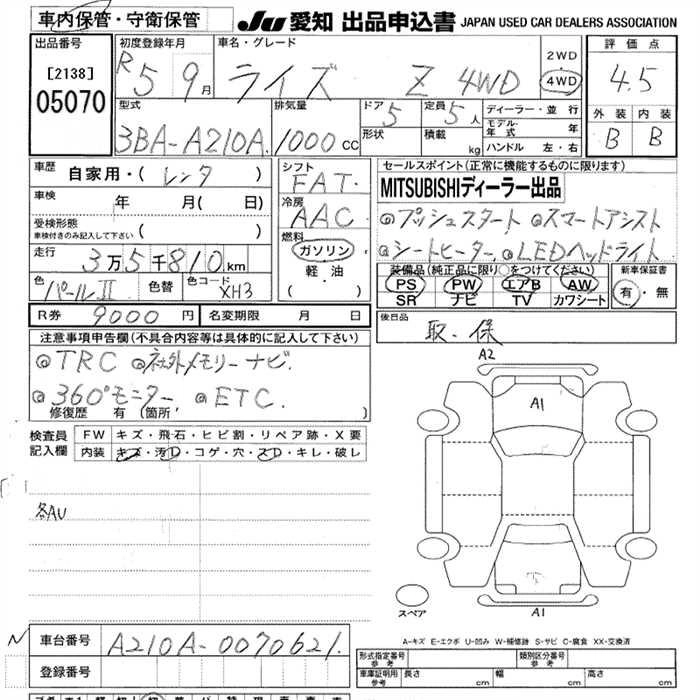 車内保管・守衛保管
JU 愛知 出品申込書 JAPAN USED CAR DEALERS ASSOCIATION
出品番号
[2138]
05070
初度登録年月
R5 9月
車名・グレード
ライズ Z 4WD
2WD
4WD
評価点
4.5
外装 内装
B B
型式
3BA-A210A
排気量
1000cc
ドア
5
形状
定員
5人
積載
kg
ディーラー・並行
モデル年式 年
ハンドル 左・右
車歴
自家用・(レンタ)
車検
年 月( 日)
受検形態
車検付きのみ記入して下さい ( )
走行
3万5千810km
色
パールII
色替
色コード
XH3
シフト
FAT
冷房
AAC
燃料
ガソリン
軽油
( ・ )
セールスポイント(正常に機能するものに限ります)
MITSUBISHIディーラー出品
◎プッシュスタート ◎スマートアシスト
◎シートヒーター ◎LEDヘッドライト
装備品(純正品に限り○をつけてください)
PS PW エアB AW
SR ナビ TV カワシート
新車保証書
有・無
R券 9000円 名変期限 月 日
後日品
取.保
注意事項申告欄(不具合内容等は具体的に記入して下さい)
◎TRC ◎社外メモリーナビ
◎360°モニター ◎ETC.
修復歴 有(箇所 )
検査員記入欄
FW キズ・飛石・ヒビ割・リペア跡・X要
内装 キズ・汚D・コゲ・穴・スD・キレ・破レ
各AU
A2
A1
A1
スペア
A-キズ E-エクボ U-凹み W-補修跡 S-サビ C-腐食 XX-交換済
車台番号 A210A-0070621
登録番号
形式指定番号 参考
類別区分番号 参考
車庫証明用 参考 長さ cm 幅 cm 高さ cm